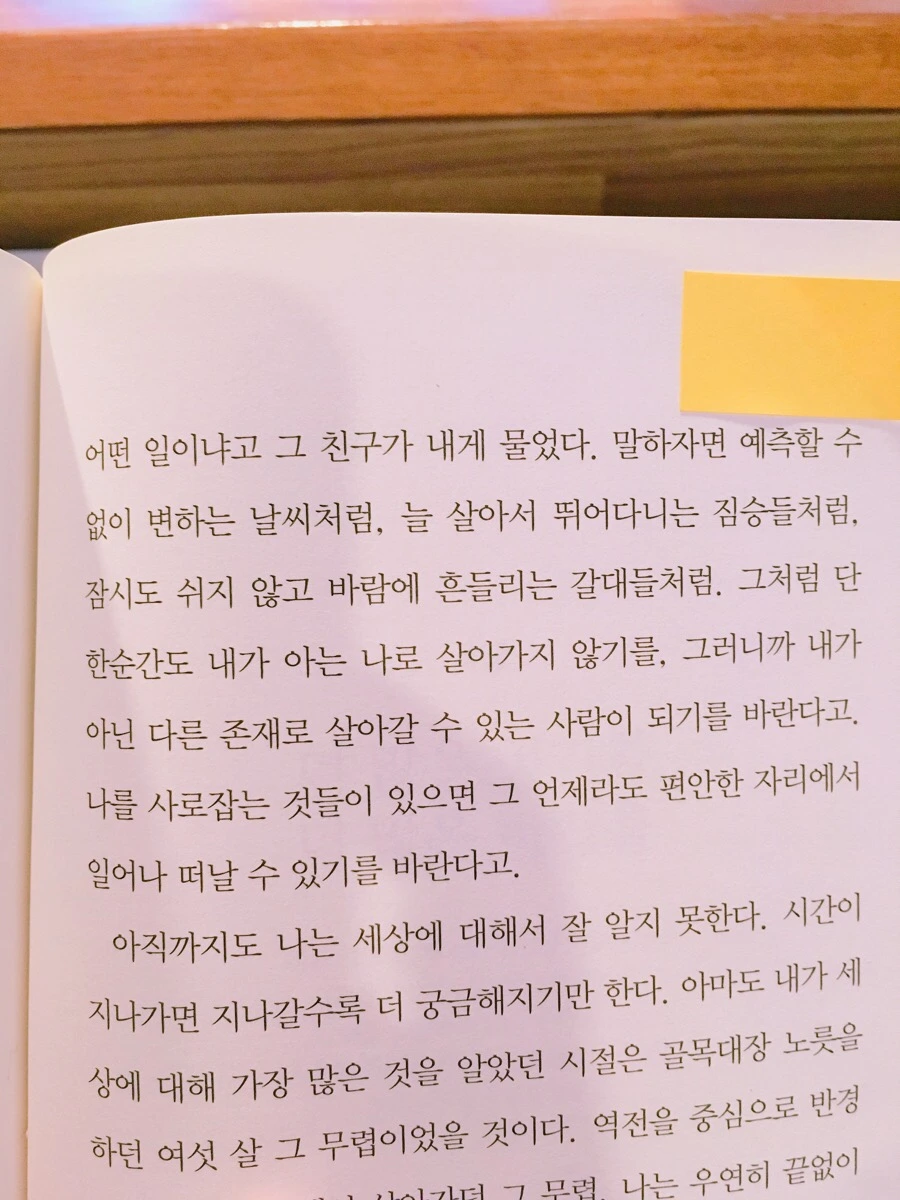 어떤 일이냐고 그 친구가 내게 물었다. 말하자면 예측할 수
없이 변하는 날씨처럼, 늘 살아서 뛰어다니는 짐승들처럼,
잠시도 쉬지 않고 바람에 흔들리는 갈대들처럼. 그처럼 단
한순간도 내가 아는 나로 살아가지 않기를, 그러니까 내가
아닌 다른 존재로 살아갈 수 있는 사람이 되기를 바란다고.
나를 사로잡는 것들이 있으면 그 언제라도 편안한 자리에서
일어나 떠날 수 있기를 바란다고.
아직까지도 나는 세상에 대해서 잘 알지 못한다. 시간이
지나가면 지나갈수록 더 궁금해지기만 한다. 아마도 내가 세
상에 대해 가장 많은 것을 알았던 시절은 골목대장 노릇을
하던 여섯 살 그 무렵이었을 것이다. 역전을 중심으로 반경
살아가던 그 무렵, 나는 우연히 끝없이